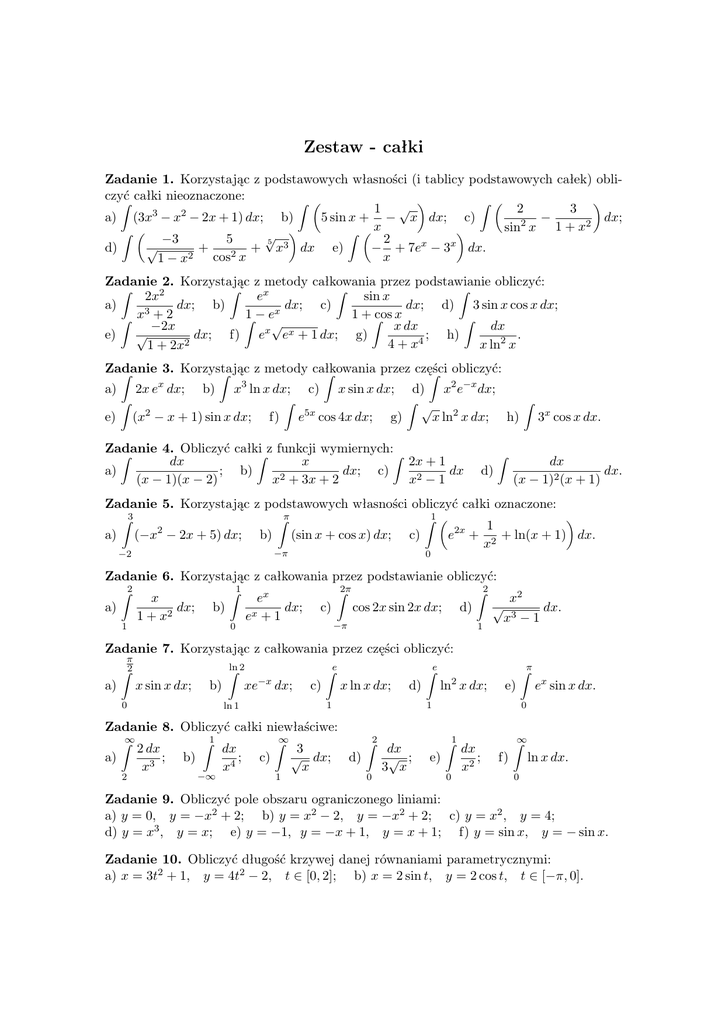 Zestaw - całki
Zadanie 1. Korzystając z podstawowych własności (i tablicy podstawowych całek) obli-
czyć całki nieoznaczone:
a) $\int (3x^3 - x^2 - 2x + 1)\,dx$; b) $\int \left(5\sin x + \frac{1}{x} - \sqrt{x}\right) dx$; c) $\int \left(\frac{2}{\sin^2 x} - \frac{3}{1+x^2}\right) dx$;
d) $\int \left(\frac{-3}{\sqrt{1-x^2}} + \frac{5}{\cos^2 x} + \sqrt[5]{x^3}\right) dx$ e) $\int \left(-\frac{2}{x} + 7e^x - 3^x\right) dx$.
Zadanie 2. Korzystając z metody całkowania przez podstawianie obliczyć:
a) $\int \frac{2x^2}{x^3+2}\,dx$; b) $\int \frac{e^x}{1-e^x}\,dx$; c) $\int \frac{\sin x}{1+\cos x}\,dx$; d) $\int 3\sin x\cos x\,dx$;
e) $\int \frac{-2x}{\sqrt{1+2x^2}}\,dx$; f) $\int e^x\sqrt{e^x+1}\,dx$; g) $\int \frac{x\,dx}{4+x^4}$; h) $\int \frac{dx}{x\ln^2 x}$.
Zadanie 3. Korzystając z metody całkowania przez części obliczyć:
a) $\int 2x\,e^x\,dx$; b) $\int x^3\ln x\,dx$; c) $\int x\sin x\,dx$; d) $\int x^2e^{-x}dx$;
e) $\int (x^2 - x + 1)\sin x\,dx$; f) $\int e^{5x}\cos 4x\,dx$; g) $\int \sqrt{x}\ln^2 x\,dx$; h) $\int 3^x\cos x\,dx$.
Zadanie 4. Obliczyć całki z funkcji wymiernych:
a) $\int \frac{dx}{(x-1)(x-2)}$; b) $\int \frac{x}{x^2+3x+2}\,dx$; c) $\int \frac{2x+1}{x^2-1}\,dx$ d) $\int \frac{dx}{(x-1)^2(x+1)}\,dx$.
Zadanie 5. Korzystając z podstawowych własności obliczyć całki oznaczone:
a) $\int_{-2}^{3} (-x^2 - 2x + 5)\,dx$; b) $\int_{-\pi}^{\pi} (\sin x + \cos x)\,dx$; c) $\int_{0}^{1} \left(e^{2x} + \frac{1}{x^2} + \ln(x+1)\right) dx$.
Zadanie 6. Korzystając z całkowania przez podstawianie obliczyć:
a) $\int_{1}^{2} \frac{x}{1+x^2}\,dx$; b) $\int_{0}^{1} \frac{e^x}{e^x+1}\,dx$; c) $\int_{-\pi}^{2\pi} \cos 2x\sin 2x\,dx$; d) $\int_{1}^{2} \frac{x^2}{\sqrt{x^3-1}}\,dx$.
Zadanie 7. Korzystając z całkowania przez części obliczyć:
a) $\int_{0}^{\frac{\pi}{2}} x\sin x\,dx$; b) $\int_{\ln 1}^{\ln 2} xe^{-x}\,dx$; c) $\int_{1}^{e} x\ln x\,dx$; d) $\int_{1}^{e} \ln^2 x\,dx$; e) $\int_{0}^{\pi} e^x\sin x\,dx$.
Zadanie 8. Obliczyć całki niewłaściwe:
a) $\int_{2}^{\infty} \frac{2\,dx}{x^3}$; b) $\int_{-\infty}^{1} \frac{dx}{x^4}$; c) $\int_{1}^{\infty} \frac{3}{\sqrt{x}}\,dx$; d) $\int_{0}^{2} \frac{dx}{3\sqrt{x}}$; e) $\int_{0}^{1} \frac{dx}{x^2}$; f) $\int_{0}^{\infty} \ln x\,dx$.
Zadanie 9. Obliczyć pole obszaru ograniczonego liniami:
a) $y = 0$, $y = -x^2 + 2$; b) $y = x^2 - 2$, $y = -x^2 + 2$; c) $y = x^2$, $y = 4$;
d) $y = x^3$, $y = x$; e) $y = -1$, $y = -x + 1$, $y = x + 1$; f) $y = \sin x$, $y = -\sin x$.
Zadanie 10. Obliczyć długość krzywej danej równaniami parametrycznymi:
a) $x = 3t^2 + 1$, $y = 4t^2 - 2$, $t \in [0, 2]$; b) $x = 2\sin t$, $y = 2\cos t$, $t \in [-\pi, 0]$.